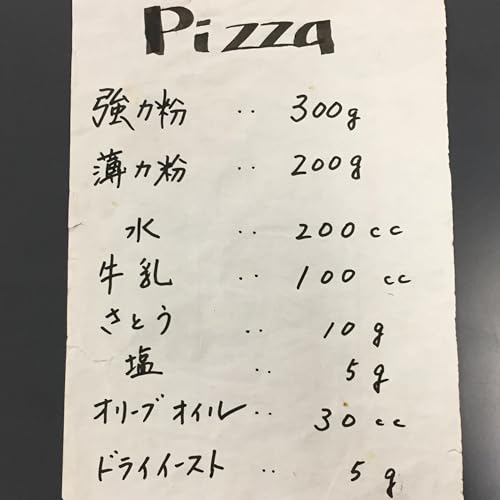 Pizza
強力粉 ‥ 300g
薄力粉 ‥ 200g
水 ‥ 200cc
牛乳 ‥ 100cc
さとう ‥ 10g
塩 ‥ 5g
オリーブオイル ‥ 30cc
ドライイースト ‥ 5g